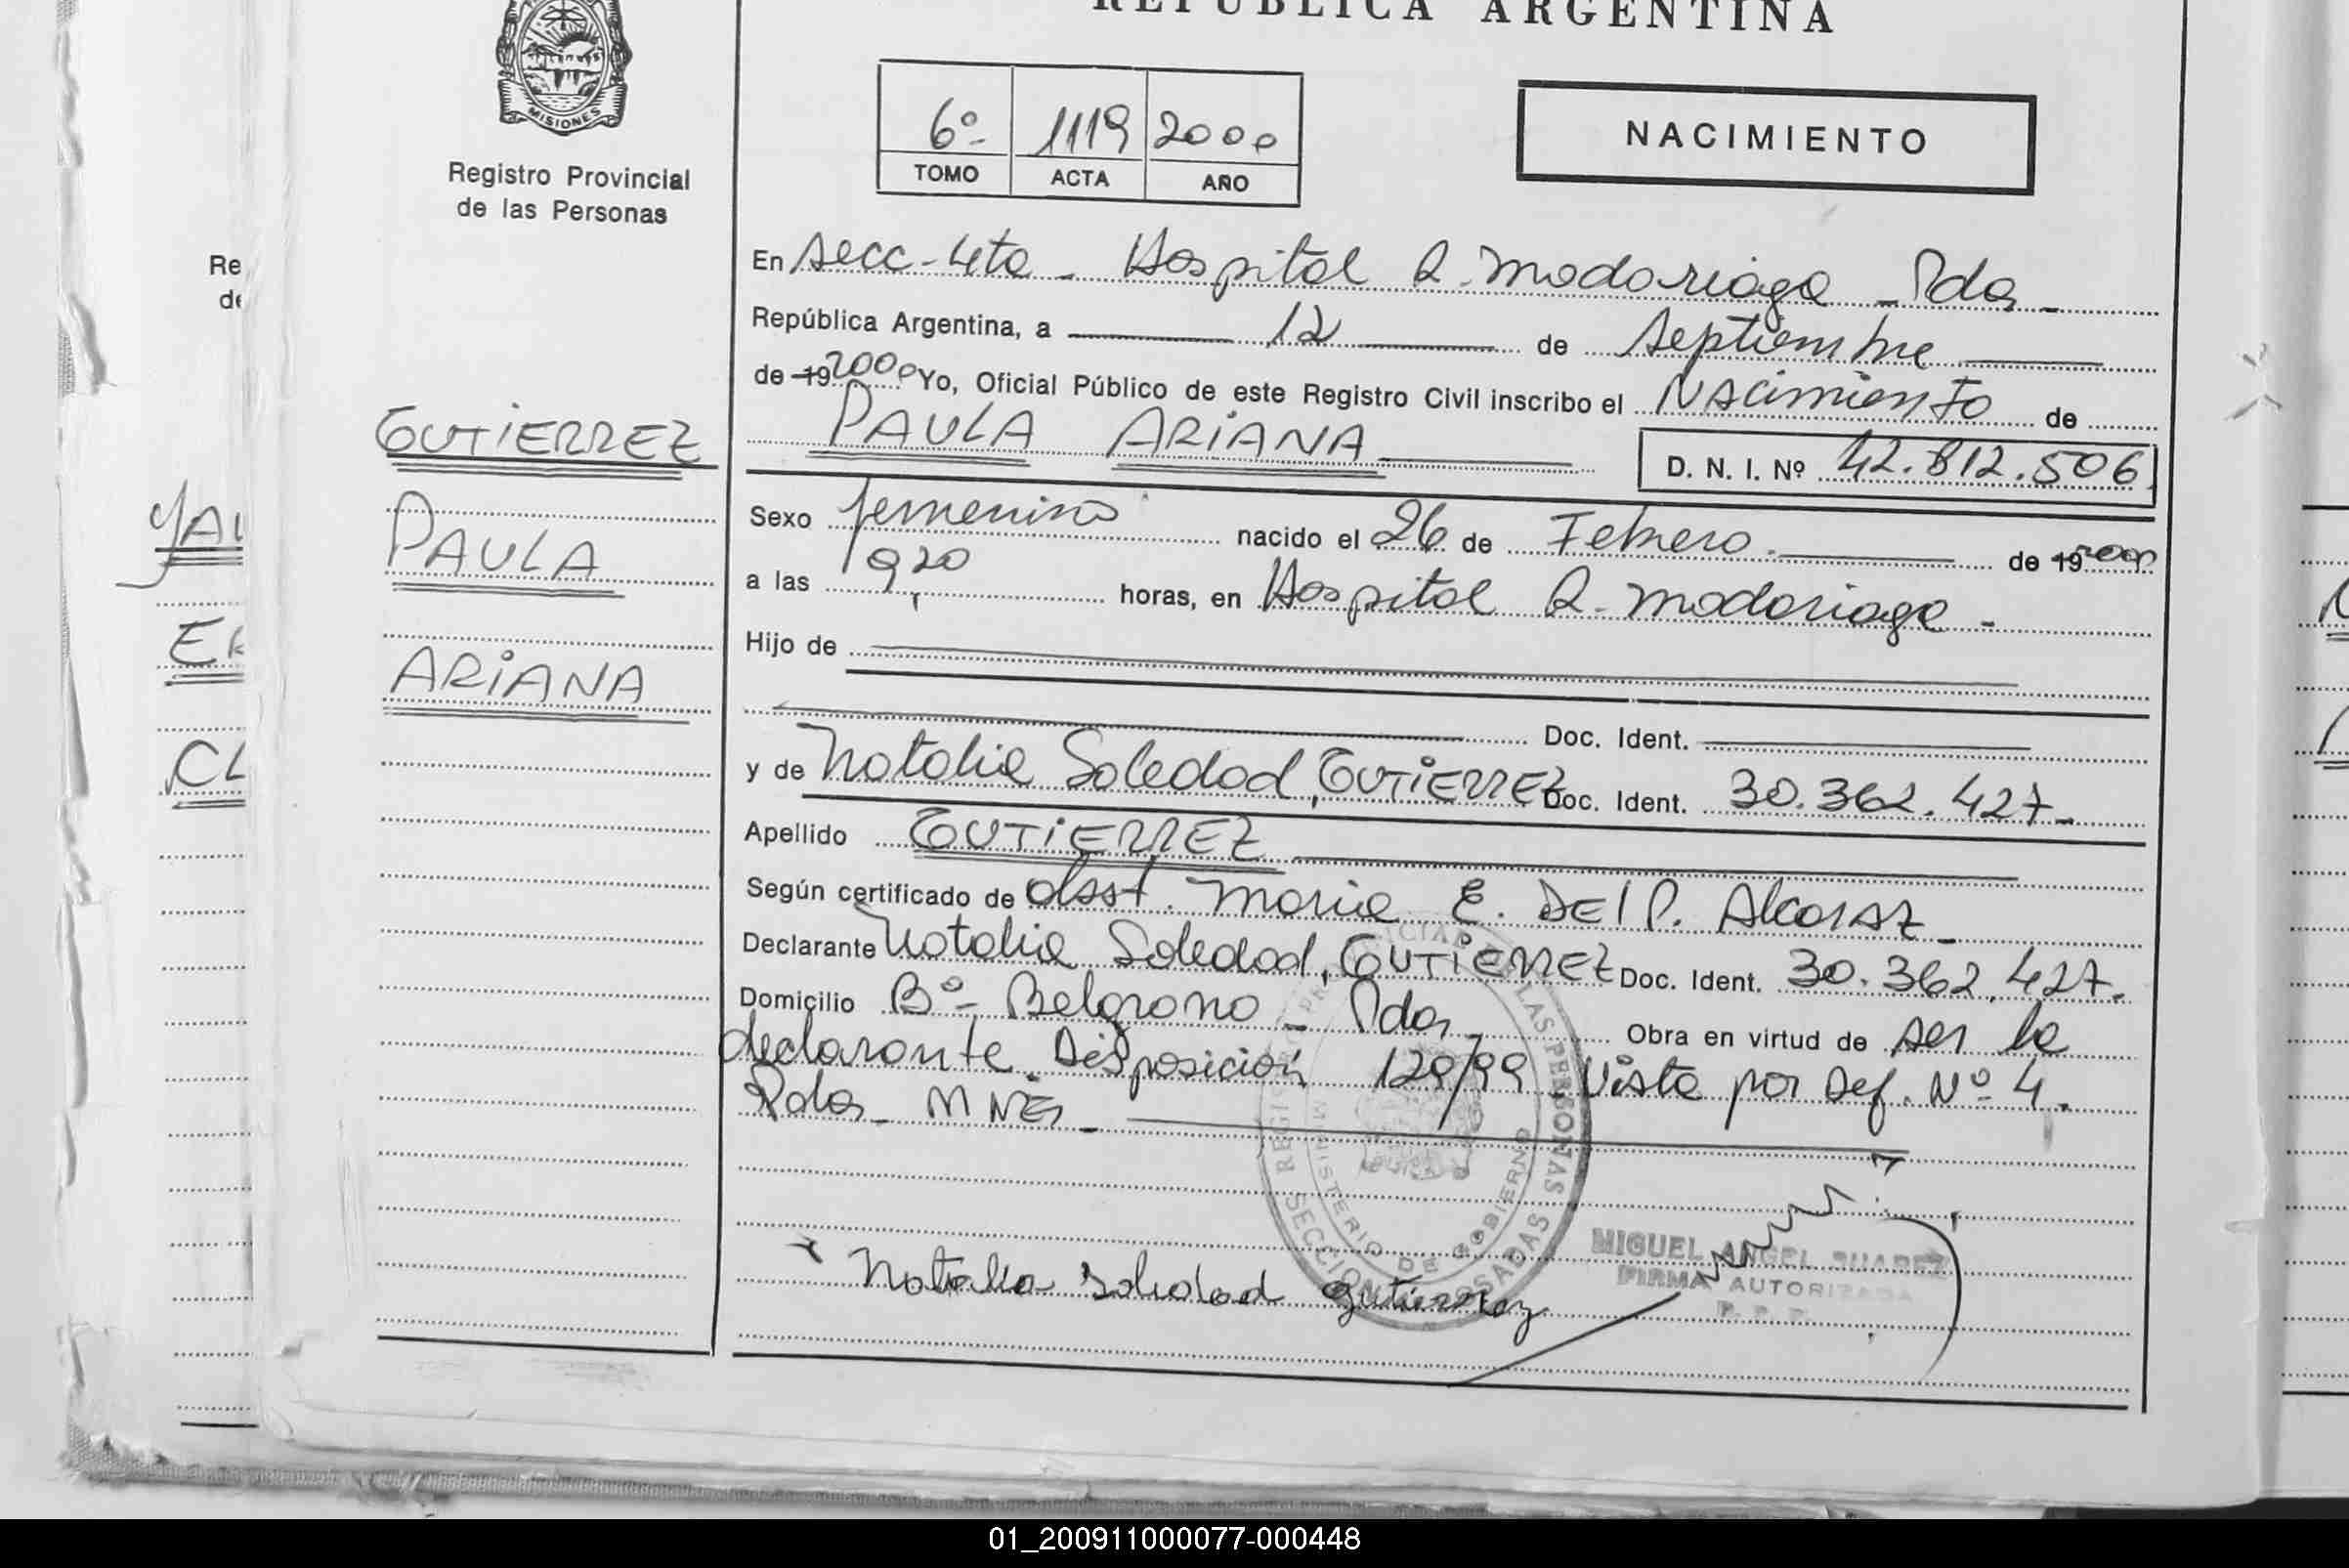 REPUBLICA ARGENTINA
MISIONES
Registro Provincial
de las Personas
6º- 1119 2000
TOMO ACTA AÑO
NACIMIENTO
Re
de
En Secc-4ta - Hospital R. Madariaga - Pdas -
República Argentina, a 12 de Septiembre
de 19 2000 Yo, Oficial Público de este Registro Civil inscribo el Nacimiento de
PAULA ARIANA
D. N. I. Nº 42.812.506.
GUTIERREZ
PAULA
ARIANA
YAL
CL
Sexo femenino nacido el 26 de Febrero. de 19 2000
a las 9,20 horas, en Hospital R. Madariaga -
Hijo de
Doc. Ident.
y de Natalia Soledad, GUTIERREZ Doc. Ident. 30.362.427-
Apellido GUTIERREZ
Según certificado de obst. Maria E. DEl P. AlcarAz -
Declarante Natalia Soledad, GUTIERREZ Doc. Ident. 30.362.427.
Domicilio Bº- Belgrano - Pdas - Obra en virtud de ser la
declarante. Disposición 129/99 Vista por Def. Nº 4.
Pdas - MNES -
REGISTRO PROVINCIAL DE LAS PERSONAS
MINISTERIO DE GOBIERNO
SECCION POSADAS
Natalia Soledad Gutierrez
MIGUEL ANGEL SUAREZ
FIRMA AUTORIZADA
R. P. P.
01_200911000077-000448